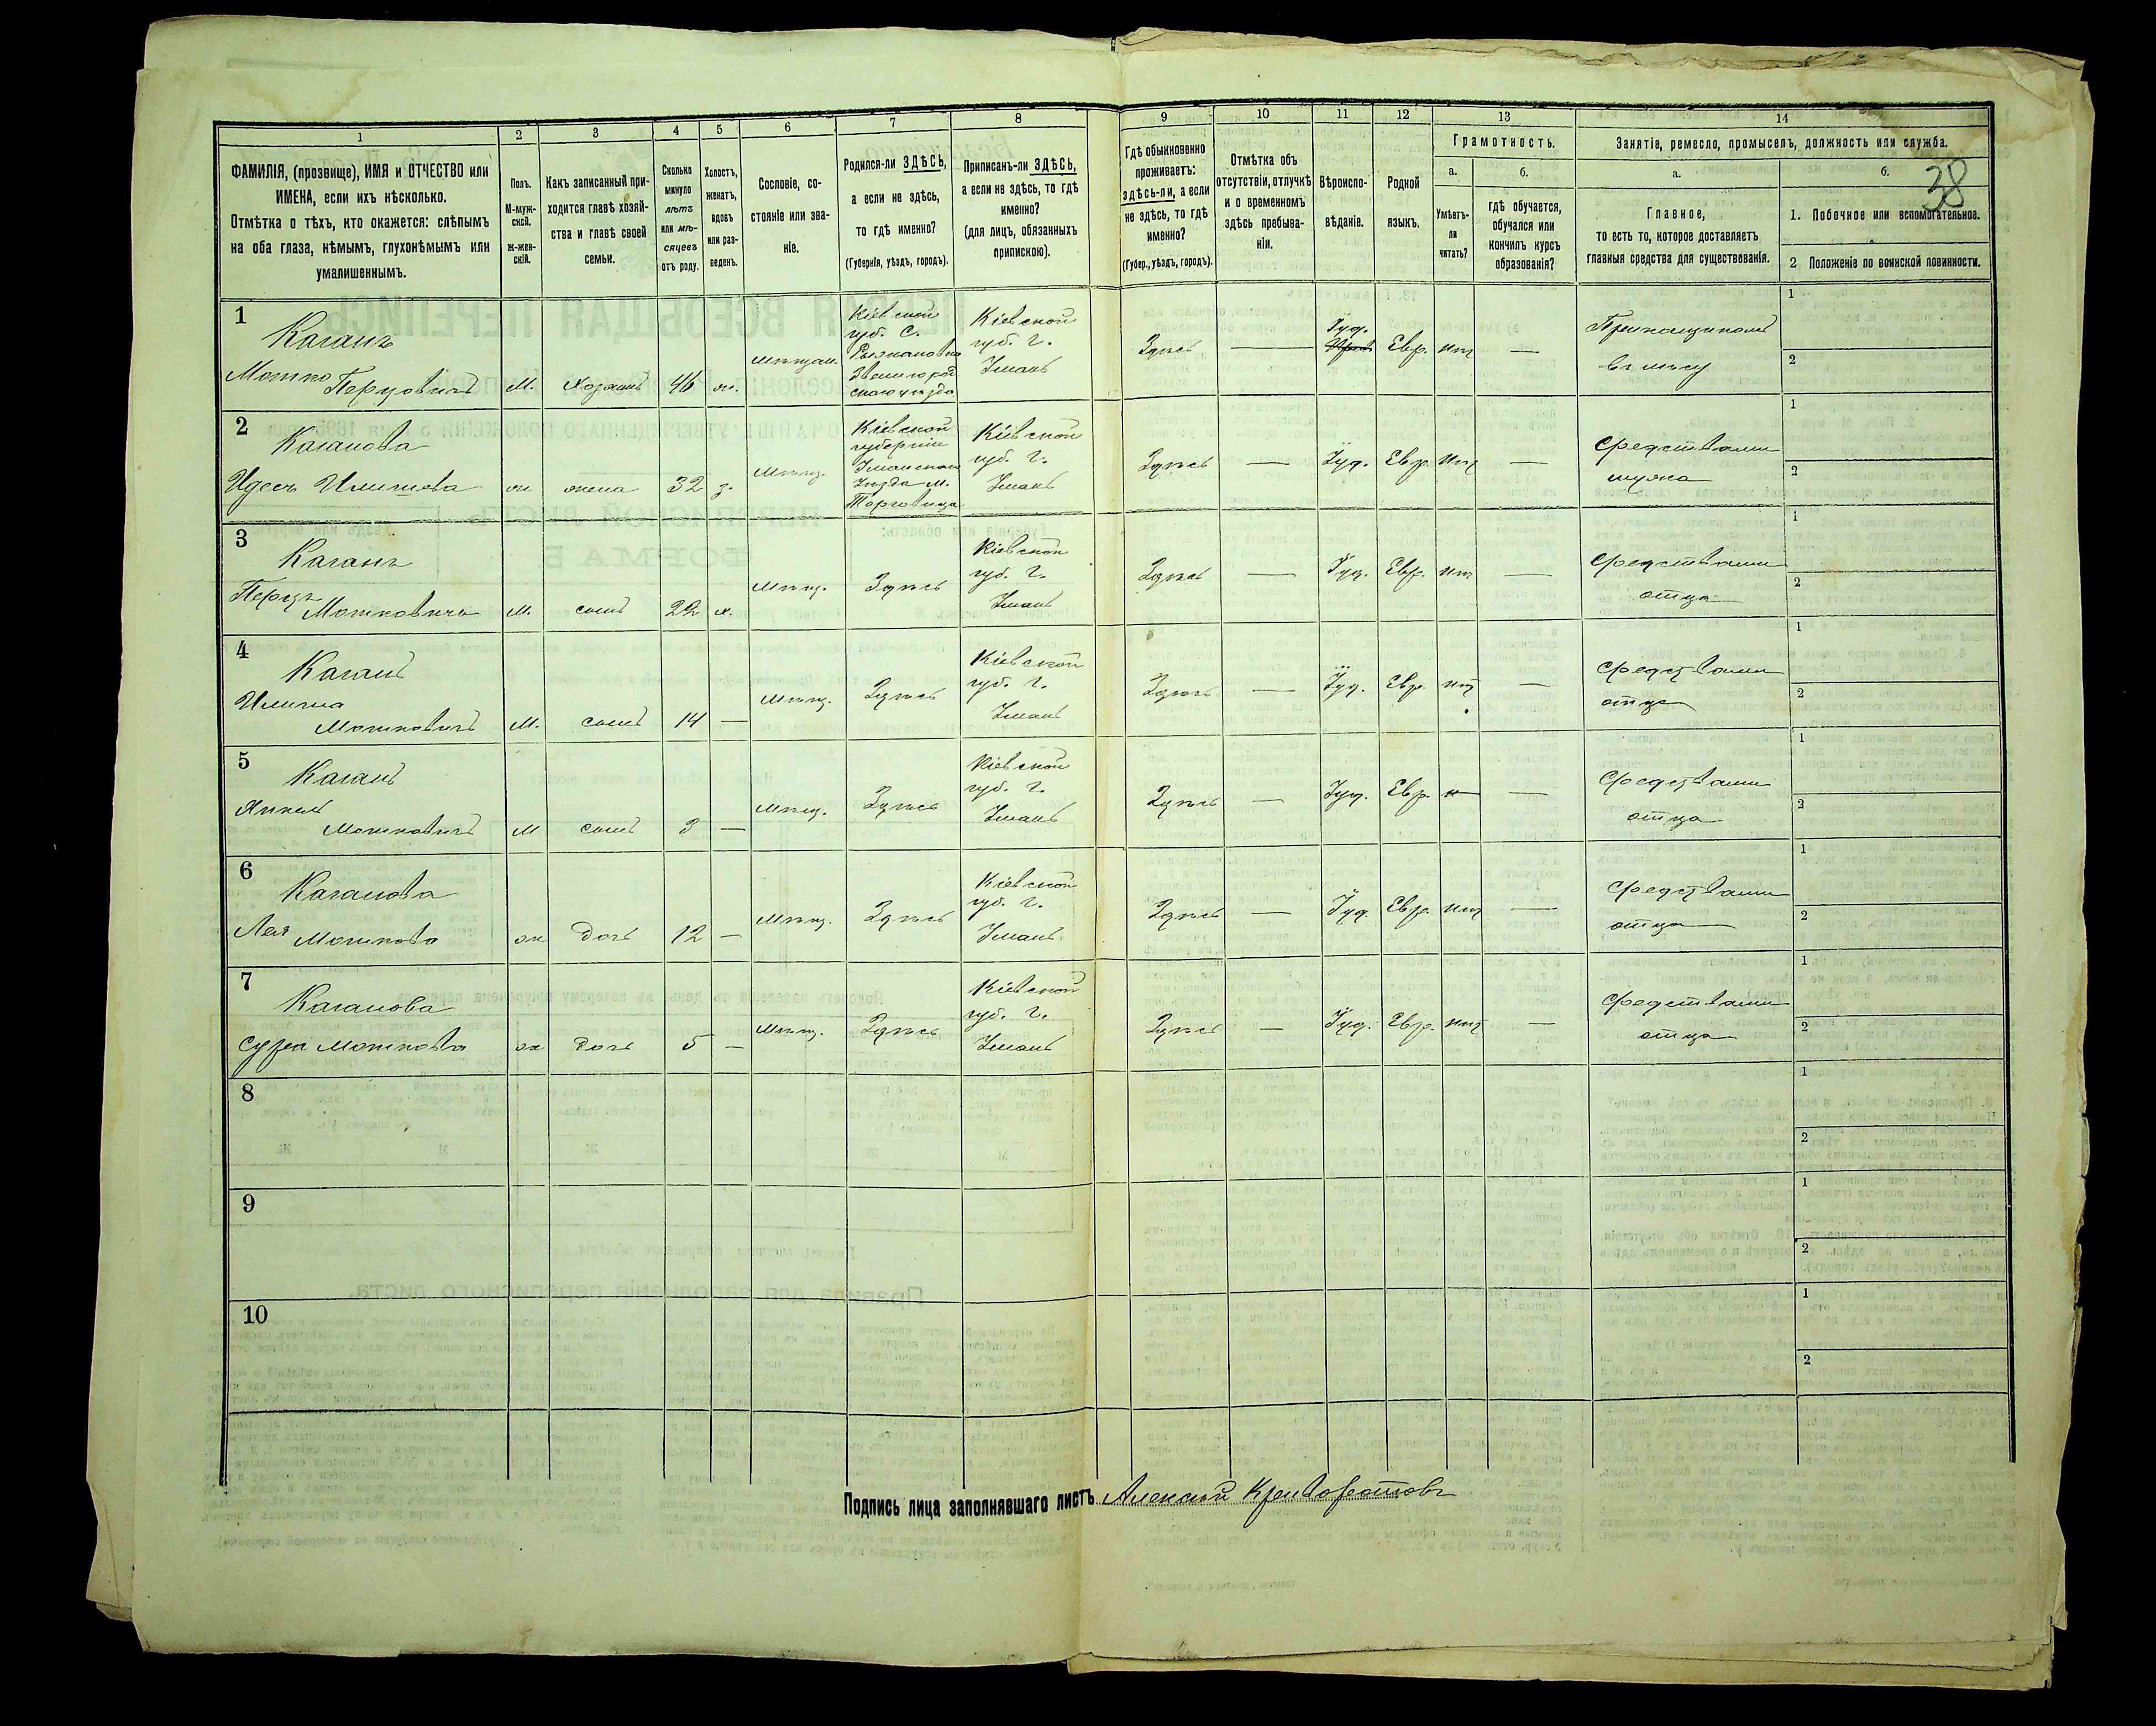 38
1
2
3
4
5
6
7
8
9
10
11
12
13
14
ФАМИЛІЯ, (прозвище), ИМЯ и ОТЧЕСТВО или
ИМЕНА, если ихъ нѣсколько.
Отмѣтка о тѣхъ, кто окажется: слѣпымъ
на оба глаза, нѣмымъ, глухонѣмымъ или
умалишеннымъ.
Полъ.
М-муж-
ской.
ж-жен-
скій.
Какъ записанный при-
ходится главѣ хозяй-
ства и главѣ своей
семьи.
Сколько
минуло
лѣтъ
или мѣ-
сяцевъ
отъ роду.
Холостъ,
женатъ,
вдовъ
или раз-
веденъ.
Сословіе, со-
стояніе или зва-
ніе.
Родился-ли ЗДѢСЬ,
а если не здѣсь,
то гдѣ именно?
(Губернія, уѣздъ, городъ).
Приписанъ-ли ЗДѢСЬ,
а если не здѣсь, то гдѣ
именно?
(для лицъ, обязанныхъ
припискою).
Гдѣ обыкновенно
проживаетъ:
здѣсь-ли, а если
не здѣсь, то гдѣ
именно?
(Губер., уѣздъ, городъ).
Отмѣтка объ
отсутствіи, отлучкѣ
и о временномъ
здѣсь пребыва-
ніи.
Вѣроиспо-
вѣданіе.
Родной
языкъ.
Грамотность.
а.
Умѣетъ-
ли
читать?
б.
гдѣ обучается,
обучался или
кончилъ курсъ
образованія?
Занятіе, ремесло, промыселъ, должность или служба.
а.
Главное,
то есть то, которое доставляетъ
главныя средства для существованія.
б.
1. Побочное или вспомогательное.
2 Положеніе по воинской повинности.
1
Каганъ
Мошко Перцовичъ
М.
хозяинъ
46
ж.
мѣщан.
Кіевской
губ. С.
Рыжановка
Звенигород
скаго уѣзда
Кіевской
губ. г.
Умань
Здѣсь
—
Іуд.
Евр.
нѣт
—
Прикащикомъ
въ лѣсу
1
2
2
Каганова
Идесъ Илишева
ж
жена
32
з.
мѣщ.
Кіевской
губерніи
Уманскаго
Уѣзда м.
Торговица
Кіевской
губ. г.
Умань
Здѣсь
—
Іуд.
Евр.
нѣт
—
Средствами
мужа
1
2
3
Каганъ
Перецъ
Мошковичъ
М.
сынъ
22
х.
мѣщ.
Здѣсь
Кіевской
губ. г.
Умань
Здѣсь
—
Іуд.
Евр.
нѣт
—
Средствами
отца
1
2
4
Каганъ
Илиша
Мошковичъ
М.
сынъ
14
—
мѣщ.
Здѣсь
Кіевской
губ. г.
Умань
Здѣсь
—
Іуд.
Евр.
нѣт
—
Средствами
отца
1
2
5
Каганъ
Янкель
Мошковичъ
М
сынъ
3
—
мѣщ.
Здѣсь
Кіевской
губ. г.
Умань
Здѣсь
—
Іуд.
Евр.
н
—
Средствами
отца
1
2
6
Каганова
Лея
Мошкова
ж
дочь
12
—
мѣщ.
Здѣсь
Кіевской
губ. г.
Умань
Здѣсь
—
Іуд.
Евр.
нѣт
—
Средствами
отца
1
2
7
Каганова
Сура Мошкова
ж
дочь
5
—
мѣщ.
Здѣсь
Кіевской
губ. г.
Умань
Здѣсь
—
Іуд.
Евр.
нѣт
—
Средствами
отца
1
2
8
1
2
9
1
2
10
1
2
Подпись лица заполнявшаго листъ Алексѣй Криворотовъ